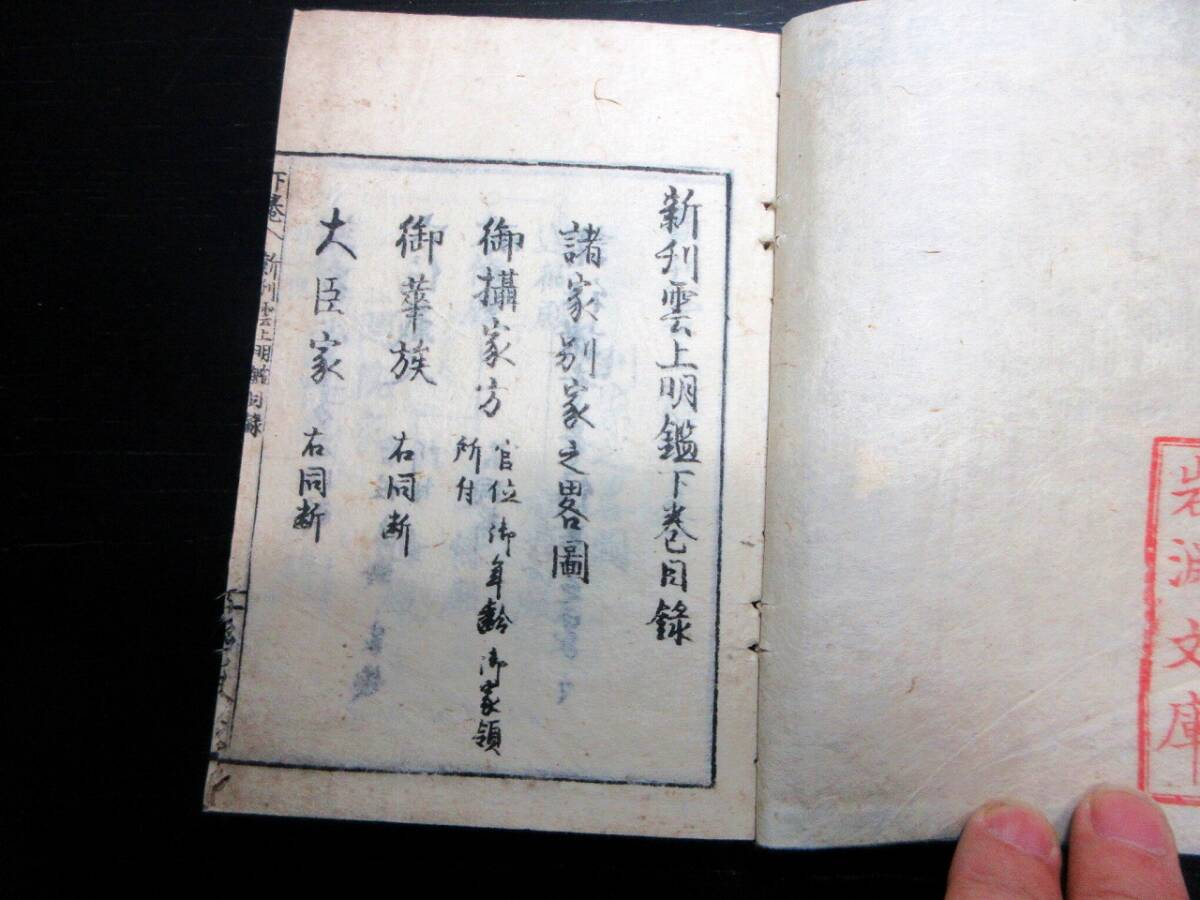 岩淵文庫
新刊雲上明鑑下巻目錄
諸家別家之畧圖
御攝家方 官位 御年齡 御家領
所付
御華族 右同断
大臣家 右同断
下巻 新刊雲上明鑑目録